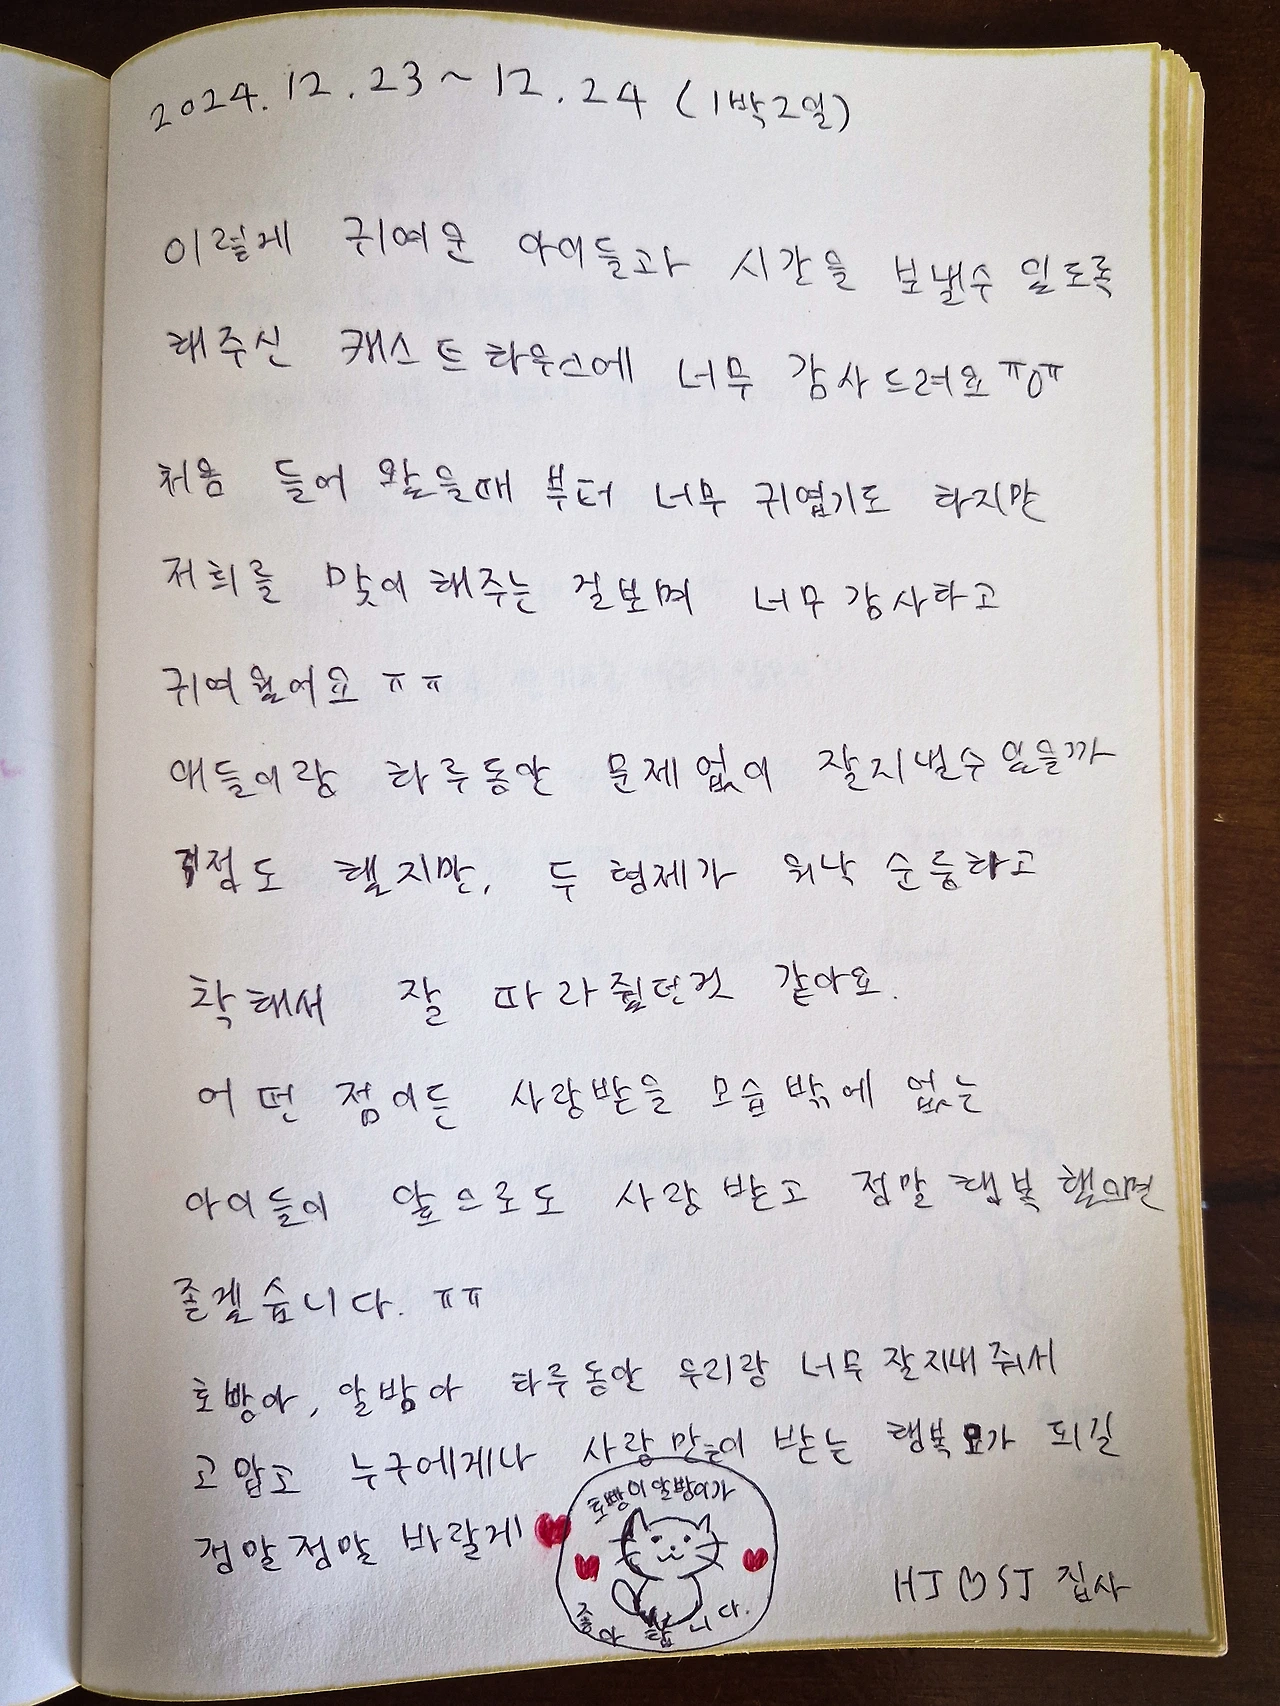 2024.12.23~12.24 (1박2일)
이렇게 귀여운 아이들과 시간을 보낼수 있도록
해주신 캐스트하우스에 너무 감사드려요 ㅠ0ㅠ
처음 들어 왔을때 부터 너무 귀엽기도 하지만
저희를 맞이해주는 걸보며 너무 감사하고
귀여웠어요 ㅠㅠ
애들이랑 하루동안 문제없이 잘지낼수있을까
걱정도 했지만, 두 형제가 워낙 순둥하고
착해서 잘 따라줬던것 같아요.
어떤 점이든 사랑받을 모습밖에 없는
아이들이 앞으로도 사랑 받고 정말 행복 했으면
좋겠습니다. ㅠㅠ
호빵아, 알밤아 하루동안 우리랑 너무 잘지내 줘서
고맙고 누구에게나 사랑 많이 받는 행복묘가 되길
정말정말 바랄게!
호빵이알밤이가
좋아합니다.
HJ♡SJ 집사